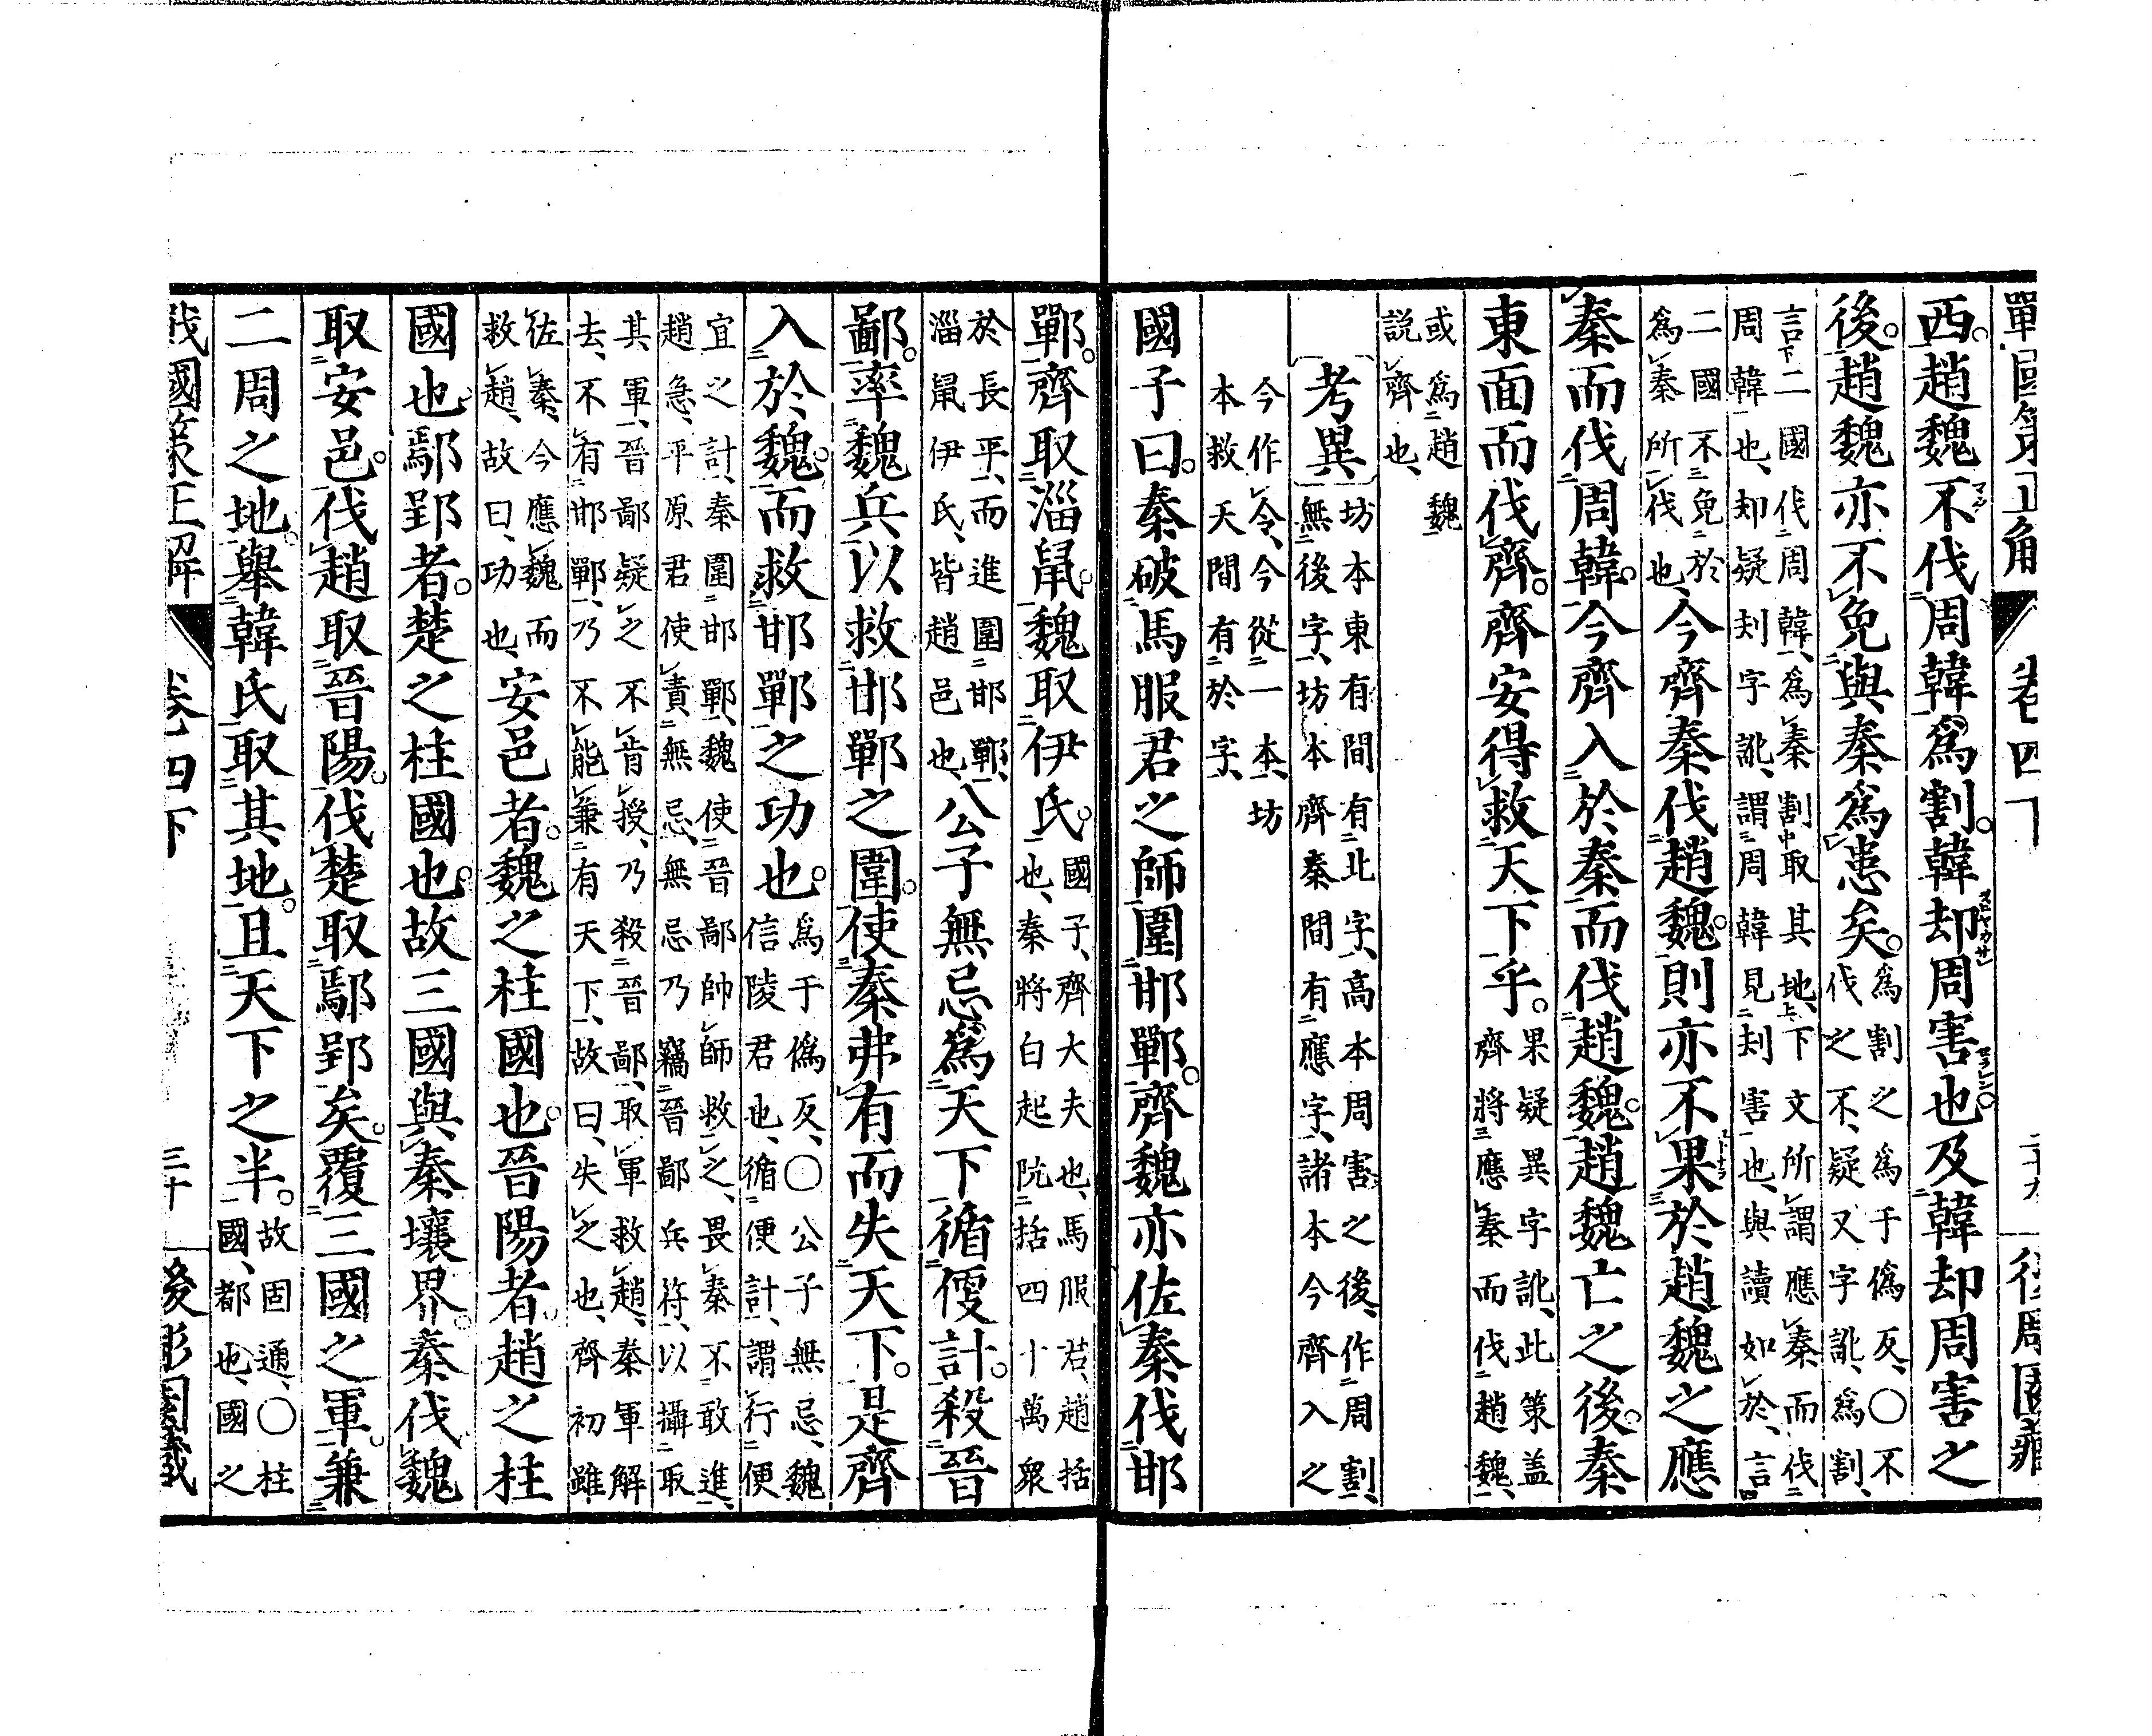 戰國策正解　卷四下　二十九　後凋園藏
西。趙魏不伐周韓爲割。韓却周害也及韓却周害之
後。趙魏亦不免與秦爲患矣。爲割之爲于僞反、○不伐之不、疑又字訛、爲割、
言二國伐周韓、爲秦割取其地、下文所謂應秦而伐周韓也、却疑刦字訛、謂周韓見刦害也、與讀如於、言
二國不免於爲秦所伐也、今齊秦伐趙魏。則亦不果於趙魏之應
秦而伐周韓。今齊入於秦而伐趙魏。趙魏亡之後。秦
東面而伐齊。齊安得救天下乎。果疑異字訛、此策盖齊將應秦而伐趙魏、
或爲趙魏説齊也、
考異、坊本東有間有北字、高本周害之後、作周割、無後字、坊本齊秦間有應字、諸本今齊入之
今作令、今從一本、坊本救天間有於字、
國子曰。秦破馬服君之師圍邯鄲。齊魏亦佐秦伐邯
鄲。齊取淄鼠。魏取伊氏。國子、齊大夫也、馬服君、趙括也、秦將白起阬括四十萬衆
於長平、而進圍邯鄲、淄鼠伊氏、皆趙邑也、公子無忌爲天下循便計。殺晉
鄙。率魏兵以救邯鄲之圍。使秦弗有而失天下。是齊
入於魏。而救邯鄲之功也。爲于僞反、○公子無忌、魏信陵君也、循便計、謂行便
宜之計、秦圍邯鄲、魏使晉鄙帥師救之、畏秦不敢進、趙急、平原君使責無忌、無忌乃竊晉鄙兵符、以攝取
其軍、晉鄙疑之不肯授、乃殺晉鄙、取軍救趙、秦軍解去、不有邯鄲、乃不能兼有天下、故曰、失之也、齊初雖
佐秦、今應魏而救趙、故曰、功也、安邑者。魏之柱國也。晉陽者。趙之柱
國也。鄢郢者。楚之柱國也。故三國與秦壤界。秦伐魏
取安邑。伐趙取晉陽。伐楚取鄢郢矣。覆三國之軍。兼
二周之地。舉韓氏取其地。且天下之半。故固通、○柱國、都也、國之
戰國策正解　卷四下　三十　後凋園藏